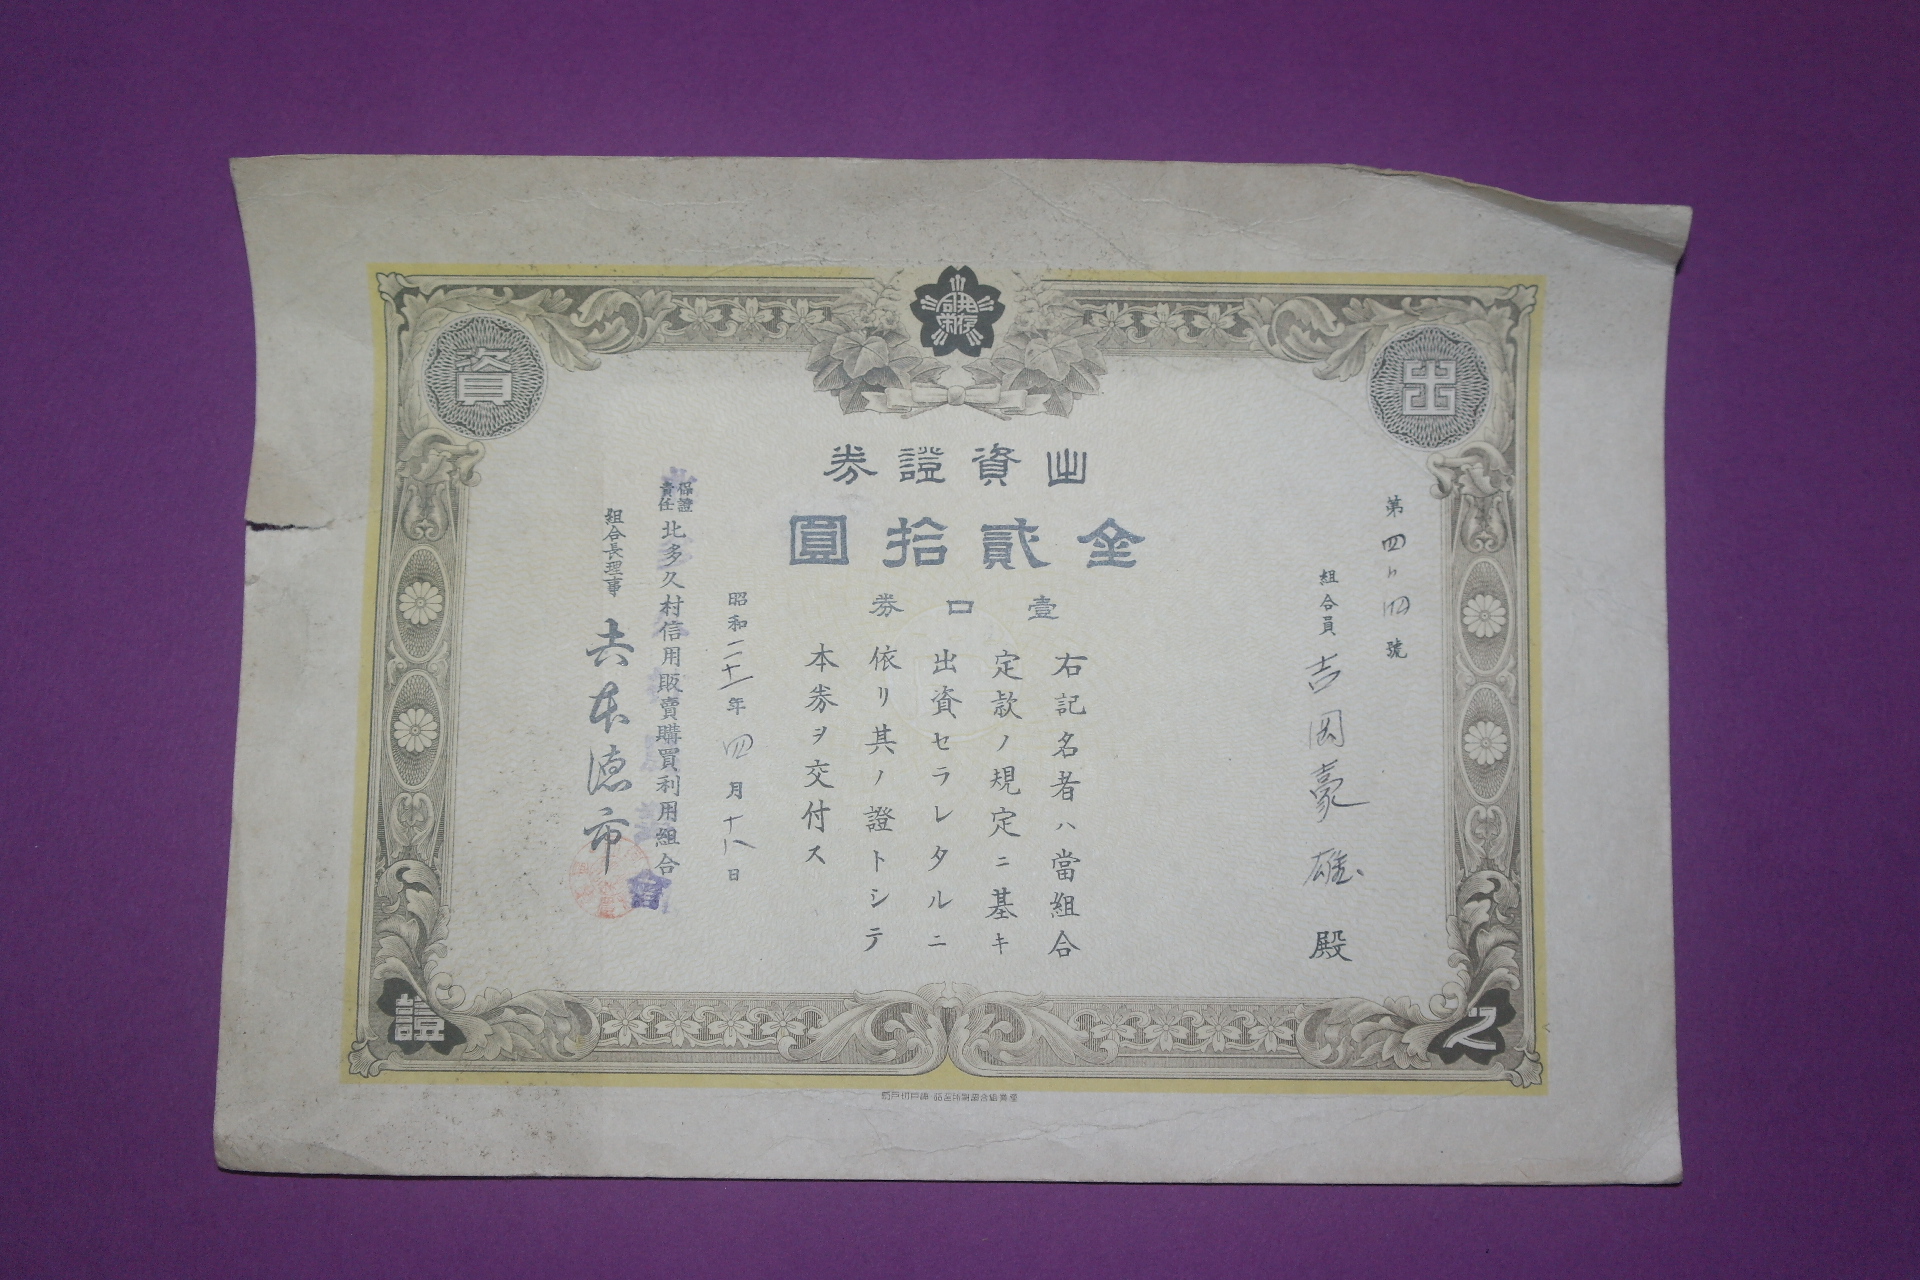 出資證券
金貳拾圓
壹口券
第四ト四號
組合員 吉岡豪雄殿
右記名者ハ當組合
定款ノ規定ニ基キ
出資セラレタルニ
依リ其ノ證トシテ
本券ヲ交付ス
昭和二十一年四月十八日
保證責任 北多久村信用販賣購買利用組合
組合長理事
出
資
之
證